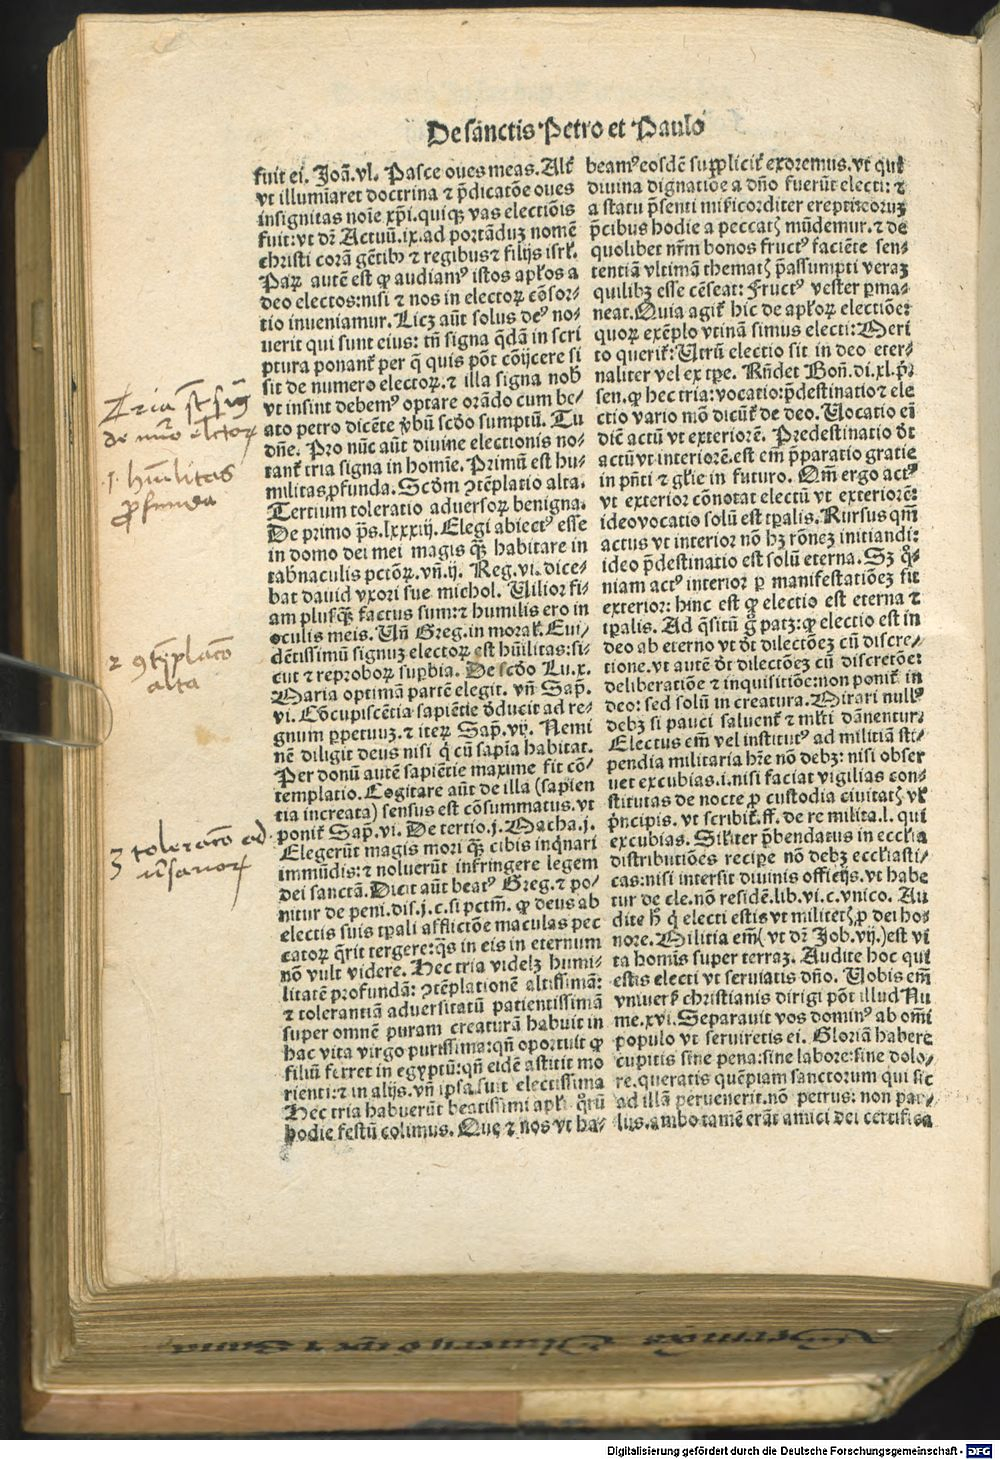 De sanctis Petro et Paulo
fuit ei. Joã. vl. Pasce oues meas. Alt͛
vt illumĩaret doctrina ⁊ p̃dicatõe oues
insignitas noĩe xp̃i. quiqꝫ vas electiõis
fuit: vt dr̃ Actuũ. ix. ad portãduꝫ nomẽ
christi corã gẽtibꝰ ⁊ regibus ⁊ filijs isrl̃.
Paꝝ autẽ est ꝙ audiamꝰ istos ap̃los a
deo electos: nisi ⁊ nos in electoꝝ cõsor-
tio inueniamur. Licꝫ aũt solus deꝰ no-
uerit qui sunt eius: tñ signa q̃dã in scri
ptura ponant͛ per q̃ quis põt cõijcere si
sit de numero electoꝝ. ⁊ illa signa nob̃
vt insint debemꝰ optare orãdo cum be-
ato petro dicẽte ꝟbũ scd̃o sumptũ. Tu
dñe. Pro nũc aũt diuine electionis no-
tant͛ tria signa in homĩe. Primũ est hu-
militas ꝓfunda. Scd̃m ꝯtẽplatio alta.
Tertium toleratio aduersoꝝ benigna.
De primo p̃s. lxxxiij. Elegi abiectꝰ esse
in domo dei mei magis qꝫ̃ habitare in
tabnaculis pctõꝝ. vñ. ij. Reg. vi. dice-
bat dauid vxori sue michol. Uilior fi-
am plusqꝫ̃ factus sum: ⁊ humilis ero in
oculis meis. Uñ Greg. in moral̃. Eui-
dẽtissimũ signuꝫ electoꝝ est hũilitas: si-
cut ⁊ reproboꝝ supbia. De scd̃o Lu. x.
Maria optimã partẽ elegit. vñ Sap̃.
vi. Cõcupiscẽtia sapiẽtie d̃ducit ad re-
gnum ꝑpetuuꝫ. ⁊ iteꝝ Sap̃. vij. Nemi
nẽ diligit deus nisi q̃ cũ sapĩa habitat.
Per donũ autẽ sapiẽtie maxime fit cõ-
templatio. Cogitare aũt de illa (sapien
tia increata) sensus est cõsummatus. vt
ponit͛ Sap̃. vi. De tertio. j. Macha. j.
Elegerũt magis mori qꝫ̃ cibis inq̃nari
immũdis: ⁊ noluerũt infringere legem
dei sanctã. Dicit aũt beatꝰ Greg. ⁊ po-
nitur de peni. dis. j. c. si pctm̃. ꝙ deus ab
electis suis tp̃ali afflictõe maculas pec
catoꝝ q̃rit tergere: q̃s in eis in eternum
nõ vult videre. Hec tria videlꝫ humi-
litatẽ profundã: ꝯtẽplationẽ altissimã:
⁊ tolerantiã aduersitatũ patientissimã
super omnẽ puram creaturã habuit in
hac vita virgo purissima: qñ oportuit ꝙ
filiũ ferret in egyptũ: qñ eidẽ astitit mo
rienti: ⁊ in alijs. vñ ipsa fuit electissima
Hec tria habuerũt beatissimi apl̃i q̃rũ
hodie festũ colimus. Que ⁊ nos vt ha-
beamꝰ eosdẽ supplicit͛ exoremus. vt qui
diuina dignatiõe a dño fuerũt electi: ⁊
a statu p̃senti mĩsicorditer erepti: eoruꝫ
p̃cibus hodie a peccatꝭ mũdemur. ⁊ de
quolibet nr̃m bonos fructꝰ faciẽte sen-
tentiã vltimã thematꝭ p̃assumpti veraꝫ
quilibꝫ esse cẽseat: Fructꝰ vester ꝑma-
neat. Quia agit͛ hic de ap̃loꝝ electiõe:
quoꝝ exẽplo vtinã simus electi: Meri
to querit͛: Utrũ electio sit in deo eter-
naliter vel ex tp̃e. Rñdet Boñ. di. xl. p̃ri
sen. ꝙ hec tria: vocatio: p̃destinatio ⁊ ele
ctio vario mõ dicũt͛ de deo. Uocatio eĩ
dic̃ actũ vt exteriorẽ. Predestinatio d̃t
actũ vt interiorẽ. est em̃ p̃paratio gratie
in p̃nti ⁊ gl̃ie in futuro. Om̃ ergo actꝰ
vt exterior cõnotat electũ vt exteriorẽ:
ideo vocatio solũ est tp̃alis. Rursus qm̃
actus vt interior nõ hꝫ rõneꝫ initiandi:
ideo p̃destinatio est solũ eterna. Sꝫ q̃-
niam actꝰ interior ꝑ manifestatiõeꝫ fit
exterior: hinc est ꝙ electio est eterna ⁊
tp̃alis. Ad q̃sitũ g̃ patꝫ: ꝙ electio est in
deo ab eterno vt d̃t dilectõeꝫ cũ discre-
tione. vt autẽ d̃t dilectõeꝫ cũ discretõe:
deliberatiõe ⁊ inquisitiõe: non ponit͛ in
deo: sed solũ in creatura. Mirari nullꝰ
debꝫ si pauci saluent͛ ⁊ ml̃ti dãnentur:
Electus em̃ vel institutꝰ ad militiã sti-
pendia militaria hr̃e nõ debꝫ: nisi obser
uet excubias. i. nisi faciat vigilias con-
stitutas de nocte ꝓ custodia ciuitatꝭ vl̃
p̃ncipis. vt scribit͛. ff. de re milita. l. qui
excubias. Sil̃iter p̃bendatus in ecclia
distributiões recipe nõ debꝫ ecclesiasti-
cas: nisi intersit diuinis officijs. vt habe
tur de cle. nõ residẽ. lib. vi. c. vnico. Au
dite h̃ q̃ electi estis vt militetꝭ ꝓ dei ho-
nore. Militia em̃ (vt dr̃ Job. vij.) est vi
ta homĩs super terraꝫ. Audite hoc qui
estis electi vt seruiatis dño. Uobis em̃
vniuerẜ christianis dirigi põt illud Nu
me. xvi. Separauit vos dominꝰ ab om̃i
populo vt seruiretis ei. Gloriã habere
cupitis sine pena: sine labore: sine dolo-
re. queratis quẽpiam sanctorum qui sic
ad illã peruenerit. nõ petrus: non pau-
lus. ambo tamẽ erãt amici dei certissi
Tria st̃ sig̃
de nũo electoꝝ
.1. hũilitas
ꝓfunda
2 ꝯtẽplatõ
alta
3 toleratõ ad
ũsarioꝝ
Digitalisierung gefördert durch die Deutsche Forschungsgemeinschaft - DFG